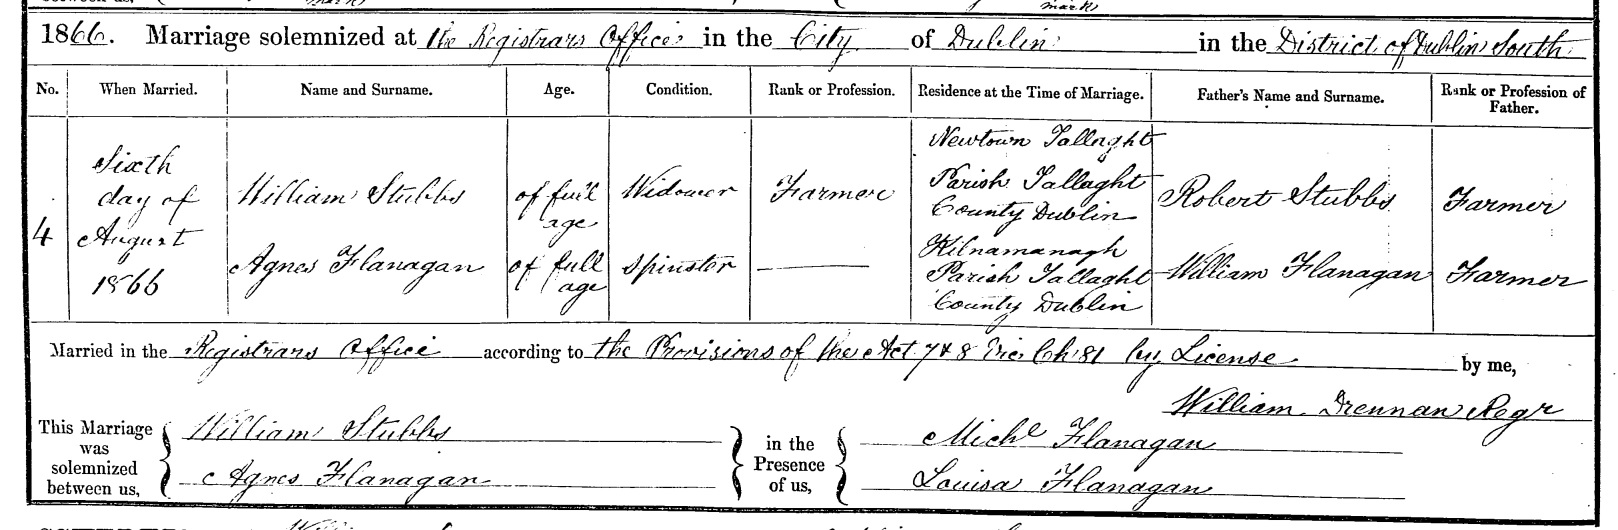 mark mark
between us,
1866. Marriage solemnized at the Registrars Office in the City of Dublin in the District of Dublin South
No. When Married. Name and Surname. Age. Condition. Rank or Profession. Residence at the Time of Marriage. Father's Name and Surname. Rank or Profession of Father.
4 Sixth day of August 1866
William Stubbs of full age Widower Farmer Newtown Tallaght Parish Tallaght County Dublin Robert Stubbs Farmer
Agnes Flanagan of full age Spinster Kilnamanagh Parish Tallaght County Dublin William Flanagan Farmer
Married in the Registrars Office according to the Provisions of the Act 7 & 8 Vic Ch 81 by License by me,
William Drennan Regr
This Marriage was solemnized between us,
William Stubbs
Agnes Flanagan
in the Presence of us,
Michl Flanagan
Louisa Flanagan